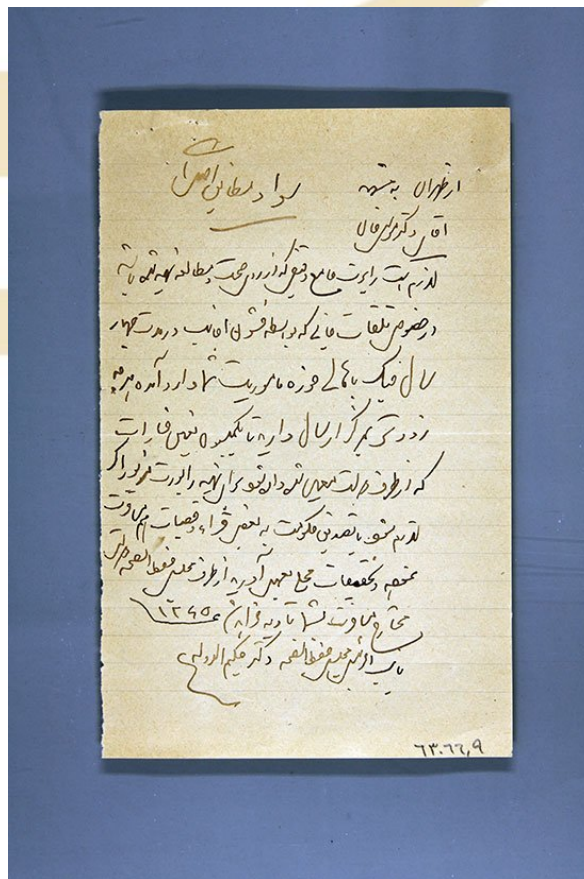 سواد مطابق اصل است
از طهران به مشهد
آقای دکتر خان
لازم است راپورت جامع دقیقی که از روی صحت و مطالعه تهیه شده باشد
در خصوص تلفات جانی که بواسطه قشون اجانب در مدت چهار
سال جنگ باهالی حوزه ماموریت شما وارد آمده هرچه
زودتر بمرکز ارسال دارید تا بکمیسیون تعیین خسارات
که از طرف دولت معین شده داده شود برای تهیه راپورت مزبور اگر
لازم شود با تصدیق حکومت به بعضی قراء و قصبات هم مسافرت
نموده و تحقیقات محلی بعمل آورید از طرف مجلس حفظ الصحه دولتی
مخارج مسافرت شما تادیه خواهد شد ۱۲۶۵
نایب رئیس مجلس حفظ الصحه دکتر حکیم الدوله
۶۳۰۶۶٫۹